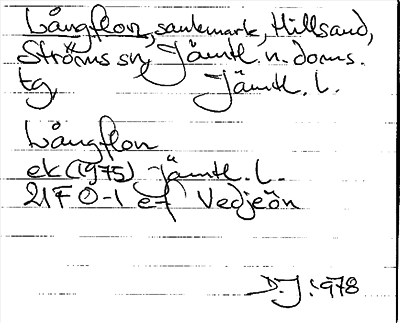 Långflon, sankmark, Hillsand,
Ströms sn, Jämtl. n. doms.
tg, Jämtl. l.
Långflon
ek (1975) Jämtl. l.
21F 0-1 ef Vedjeön
D.J. 1978